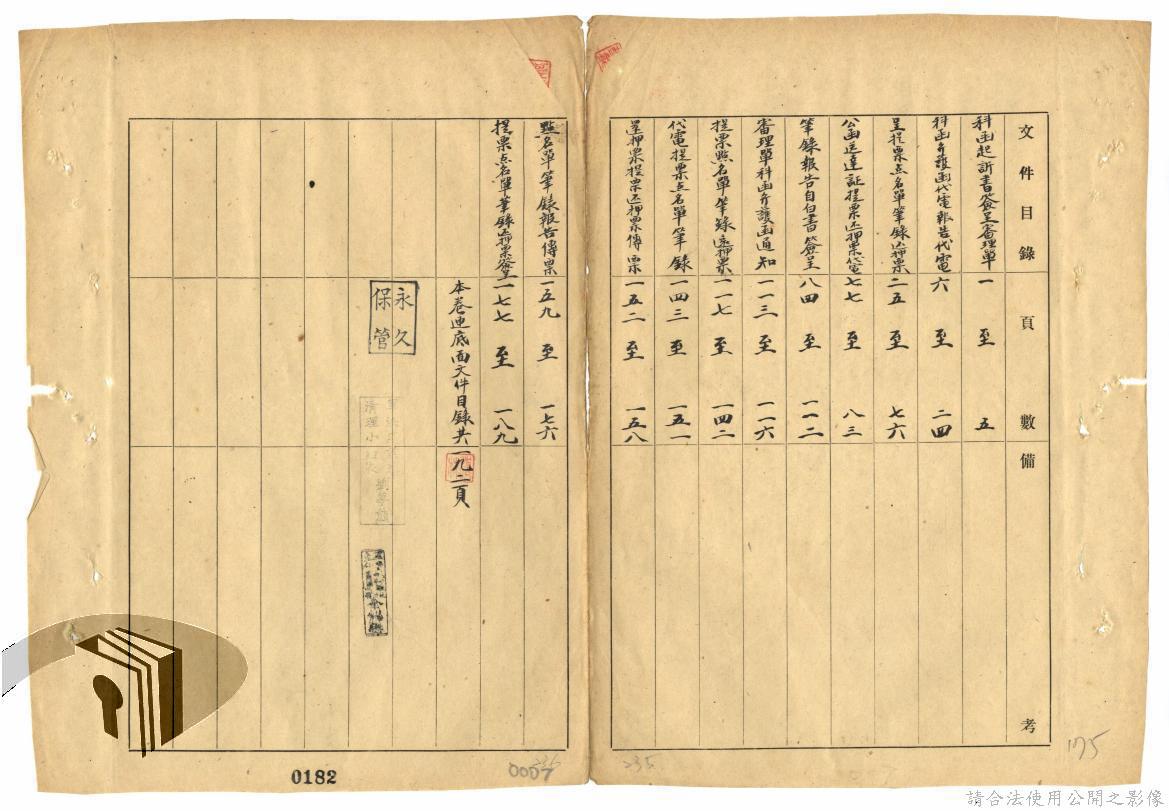 文件目錄 頁數 備考
科函起訴書簽呈審理單 一至五
科函弁護函代電報告代電 六至二四
呈提票点名單筆錄还押票 二五至七六
公函送達証提票还押票代電 七七至八三
筆錄報告自白書簽呈 八四至一一二
審理單科函弁護函通知 一一三至一一六
提票點名單筆錄還押票 一一七至一四二
代電提票点名單筆錄 一四三至一五一
還押票提票还押票傳票 一五二至一五八
點名單筆錄報告傳票 一五九至一七六
提票点名單筆錄还押票簽呈 一七七至一八九
本卷連底面文件目錄共一九二頁
永久
保管
清理小組
0182
0007
236
235
175
請合法使用公開之影像